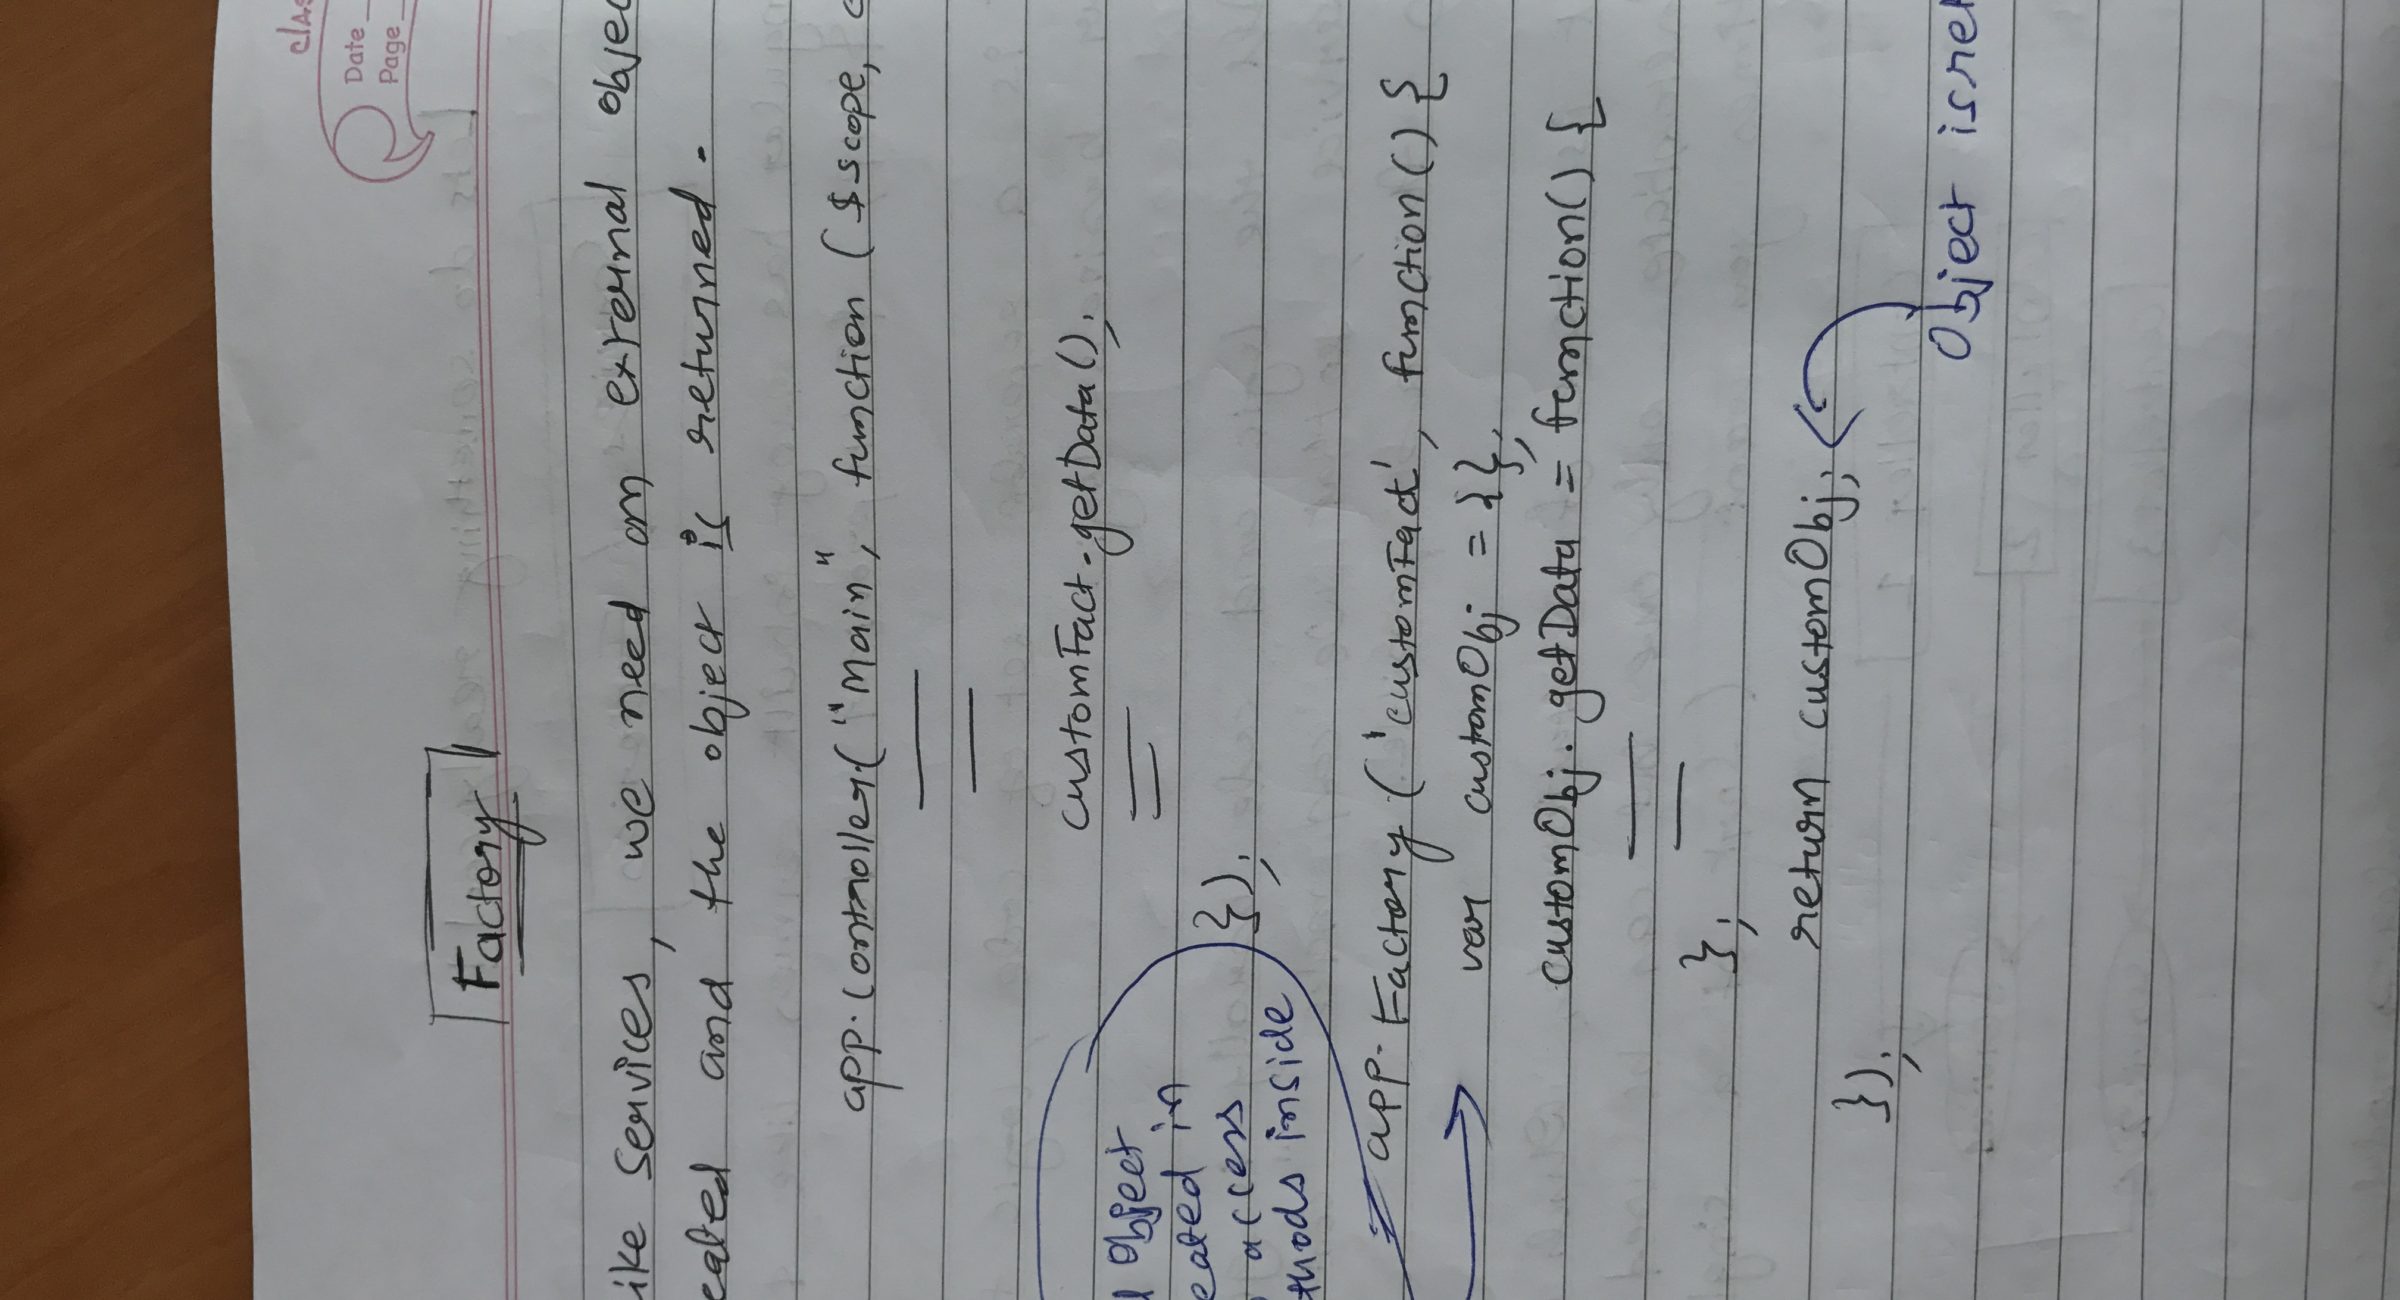 clas
Date
Page
Factory
ike services, we need an external objec
eated and the object is returned.
app.controller("Main", function ($scope, c
customFact.getData();
object
eated in
access
thods inside
});
app.Factory('customFact', function() {
var customObj = {};
customObj.getData = function() {
};
return customObj;
});
Object is ret